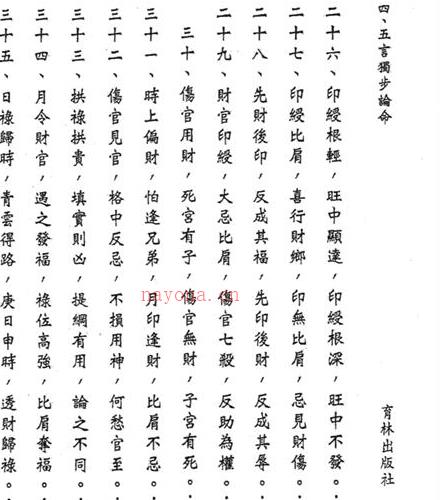 四、五言獨步論命
二十六、印綬根輕，旺中顯達，印綬根深，旺中不發。
二十七、印綬比肩，喜行財鄉，印無比肩，忌見財傷。
二十八、先財後印，反成其福，先印後財，反成其辱。
二十九、財官印綬，大忌比肩，傷官七殺，反助為權。
三十、傷官用財，死宮有子，傷官無財，子宮有死。
三十一、時上偏財，怕逢兄弟，月印逢財，比肩不忌。
三十二、傷官見官，格中反忌，不損用神，何愁官至。
三十三、拱祿拱貴，填實則凶，提綱有用，論之不同。
三十四、月令財官，遇之發福，祿位高強，比肩奪福。
三十五、日祿歸時，青雲得路，庚日申時，透財歸祿。
育林出版社
nayona.cn